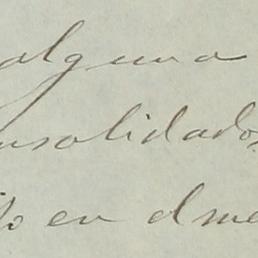 alguna
nsolidados
to en el me